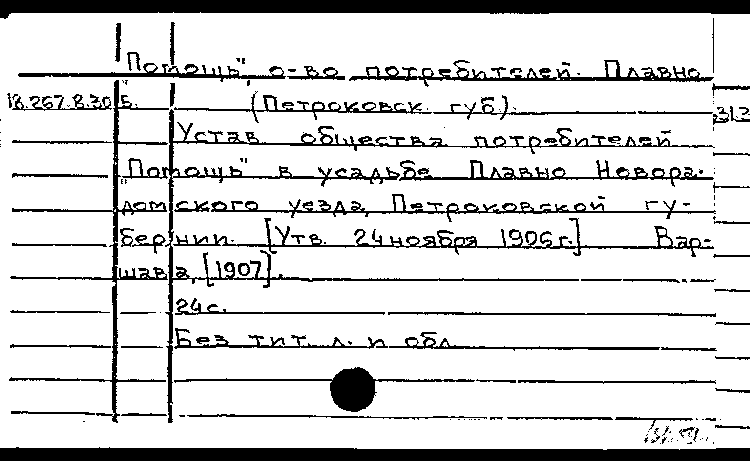 "Помощь", о-во потребителей. Плавно
18.267.8.30 Б. (Петроковск. губ).
Устав общества потребителей
"Помощь" в усадьбе Плавно Новора-
домского уезда, Петроковской гу-
бернии. [Утв. 24 ноября 1906 г.] Вар-
шава, [1907].
24 с.
Без тит. л. и обл.